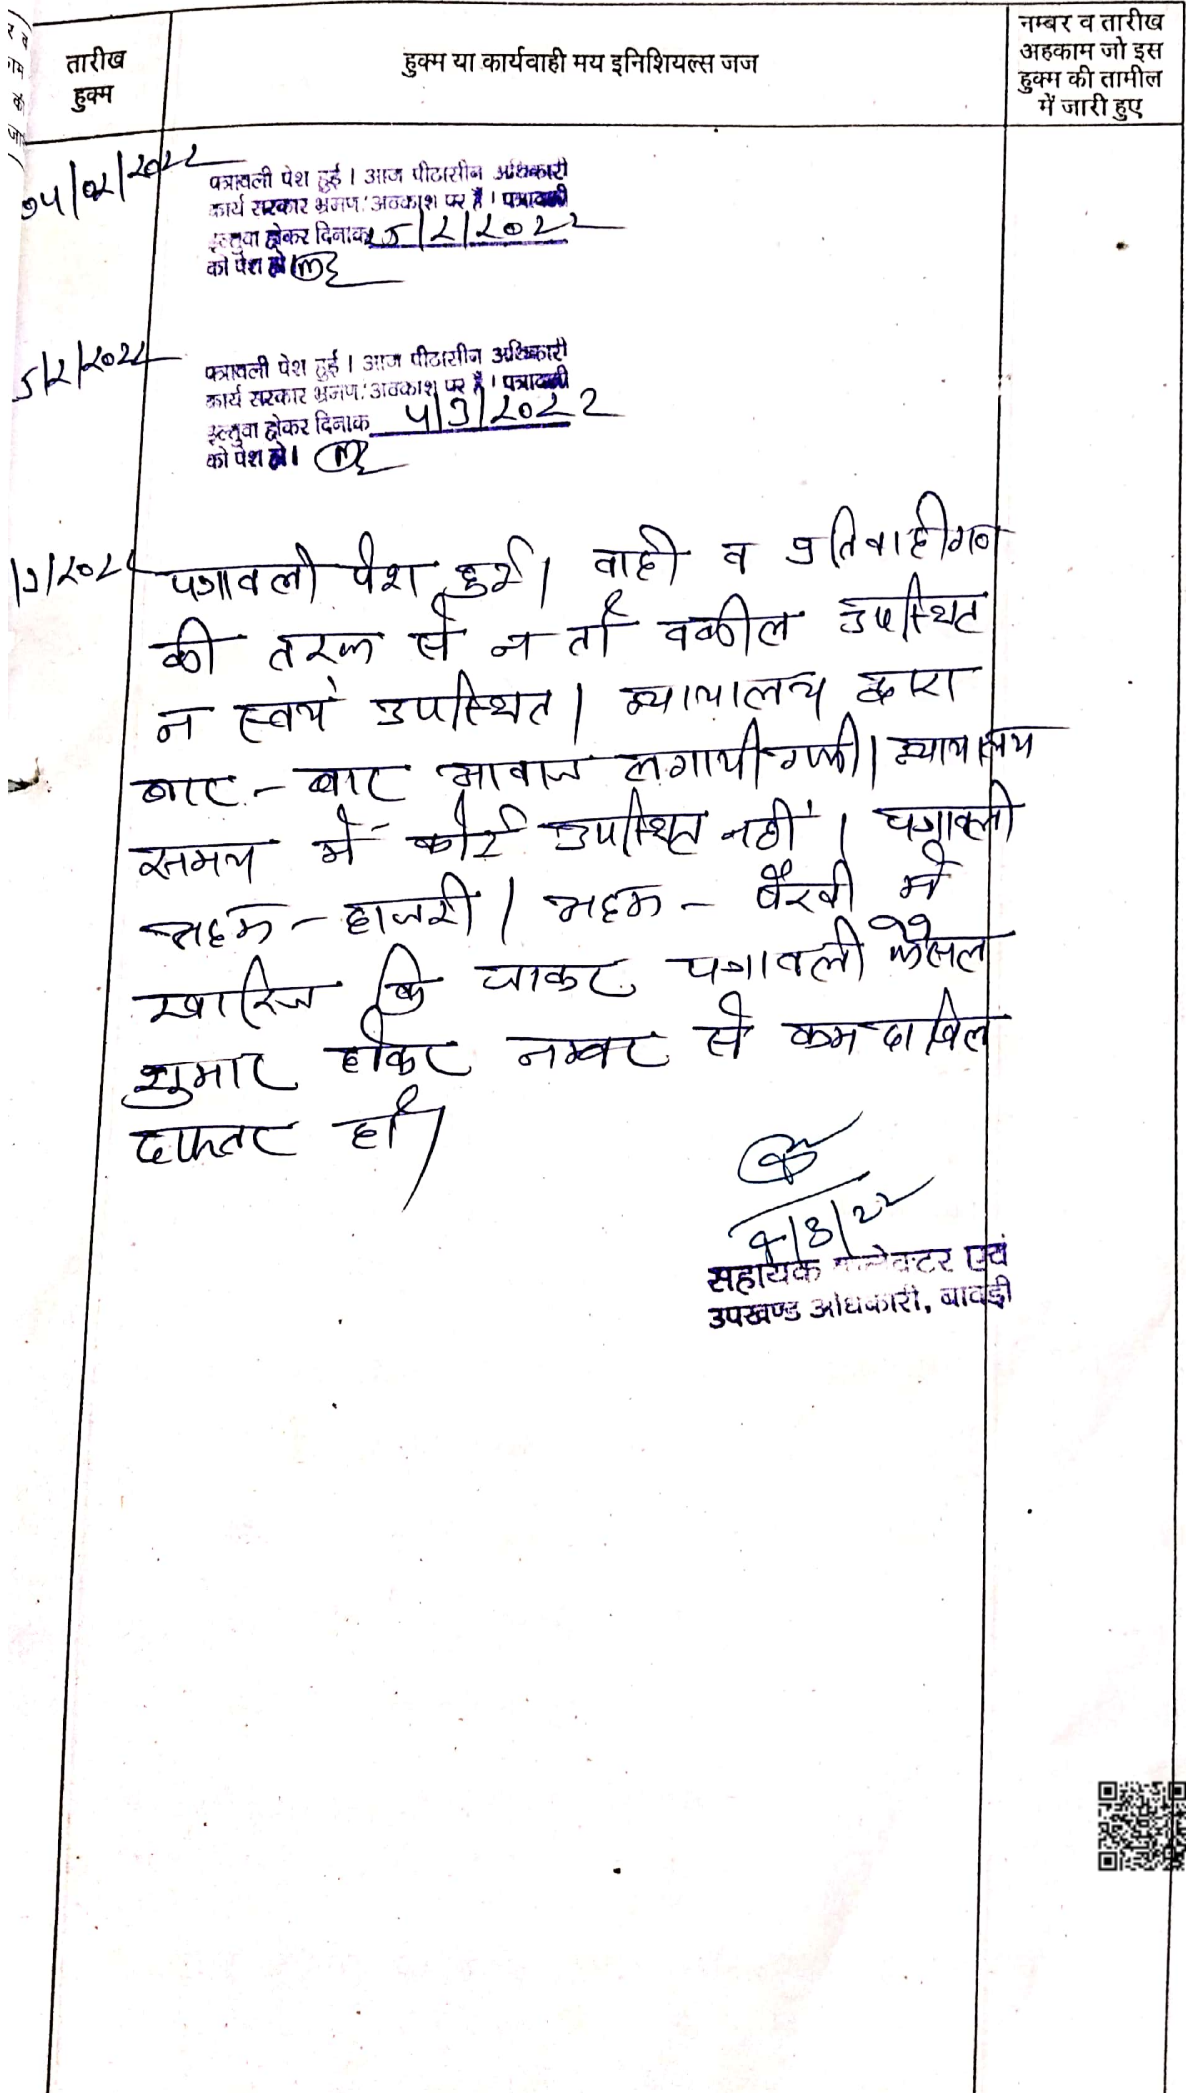 तारीख
हुक्म
हुक्म या कार्यवाही मय इनिशियल्स जज
नम्बर व तारीख
अहकाम जो इस
हुक्म की तामील
में जारी हुए
04/02/2022
पत्रावली पेश हुई। आज पीठासीन अधिकारी
कार्य सरकार भ्रमण/अवकाश पर है। पत्रावली
इल्तुवा होकर दिनांक 25/2/2022
को पेश हो।
5/2/2022
पत्रावली पेश हुई। आज पीठासीन अधिकारी
कार्य सरकार भ्रमण/अवकाश पर है। पत्रावली
इल्तुवा होकर दिनांक 4/3/2022
को पेश हो।
/3/2022
पत्रावली पेश हुई। वादी व प्रतिवादीगण
की तरफ से न तो वकील उपस्थित
न स्वयं उपस्थित। न्यायालय द्वारा
बार-बार आवाज लगायी गयी। न्यायालय
समय में कोई उपस्थित नहीं। पत्रावली
अदम-हाजरी/अदम-पैरवी में
खारिज कि जाकर पत्रावली फैसल
शुमार होकर नम्बर से कम दाखिल
दफ्तर हो।
4/3/22
सहायक कलेक्टर एवं
उपखण्ड अधिकारी, बावड़ी